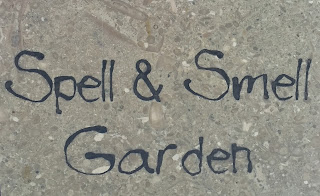 Spell & Smell
Garden